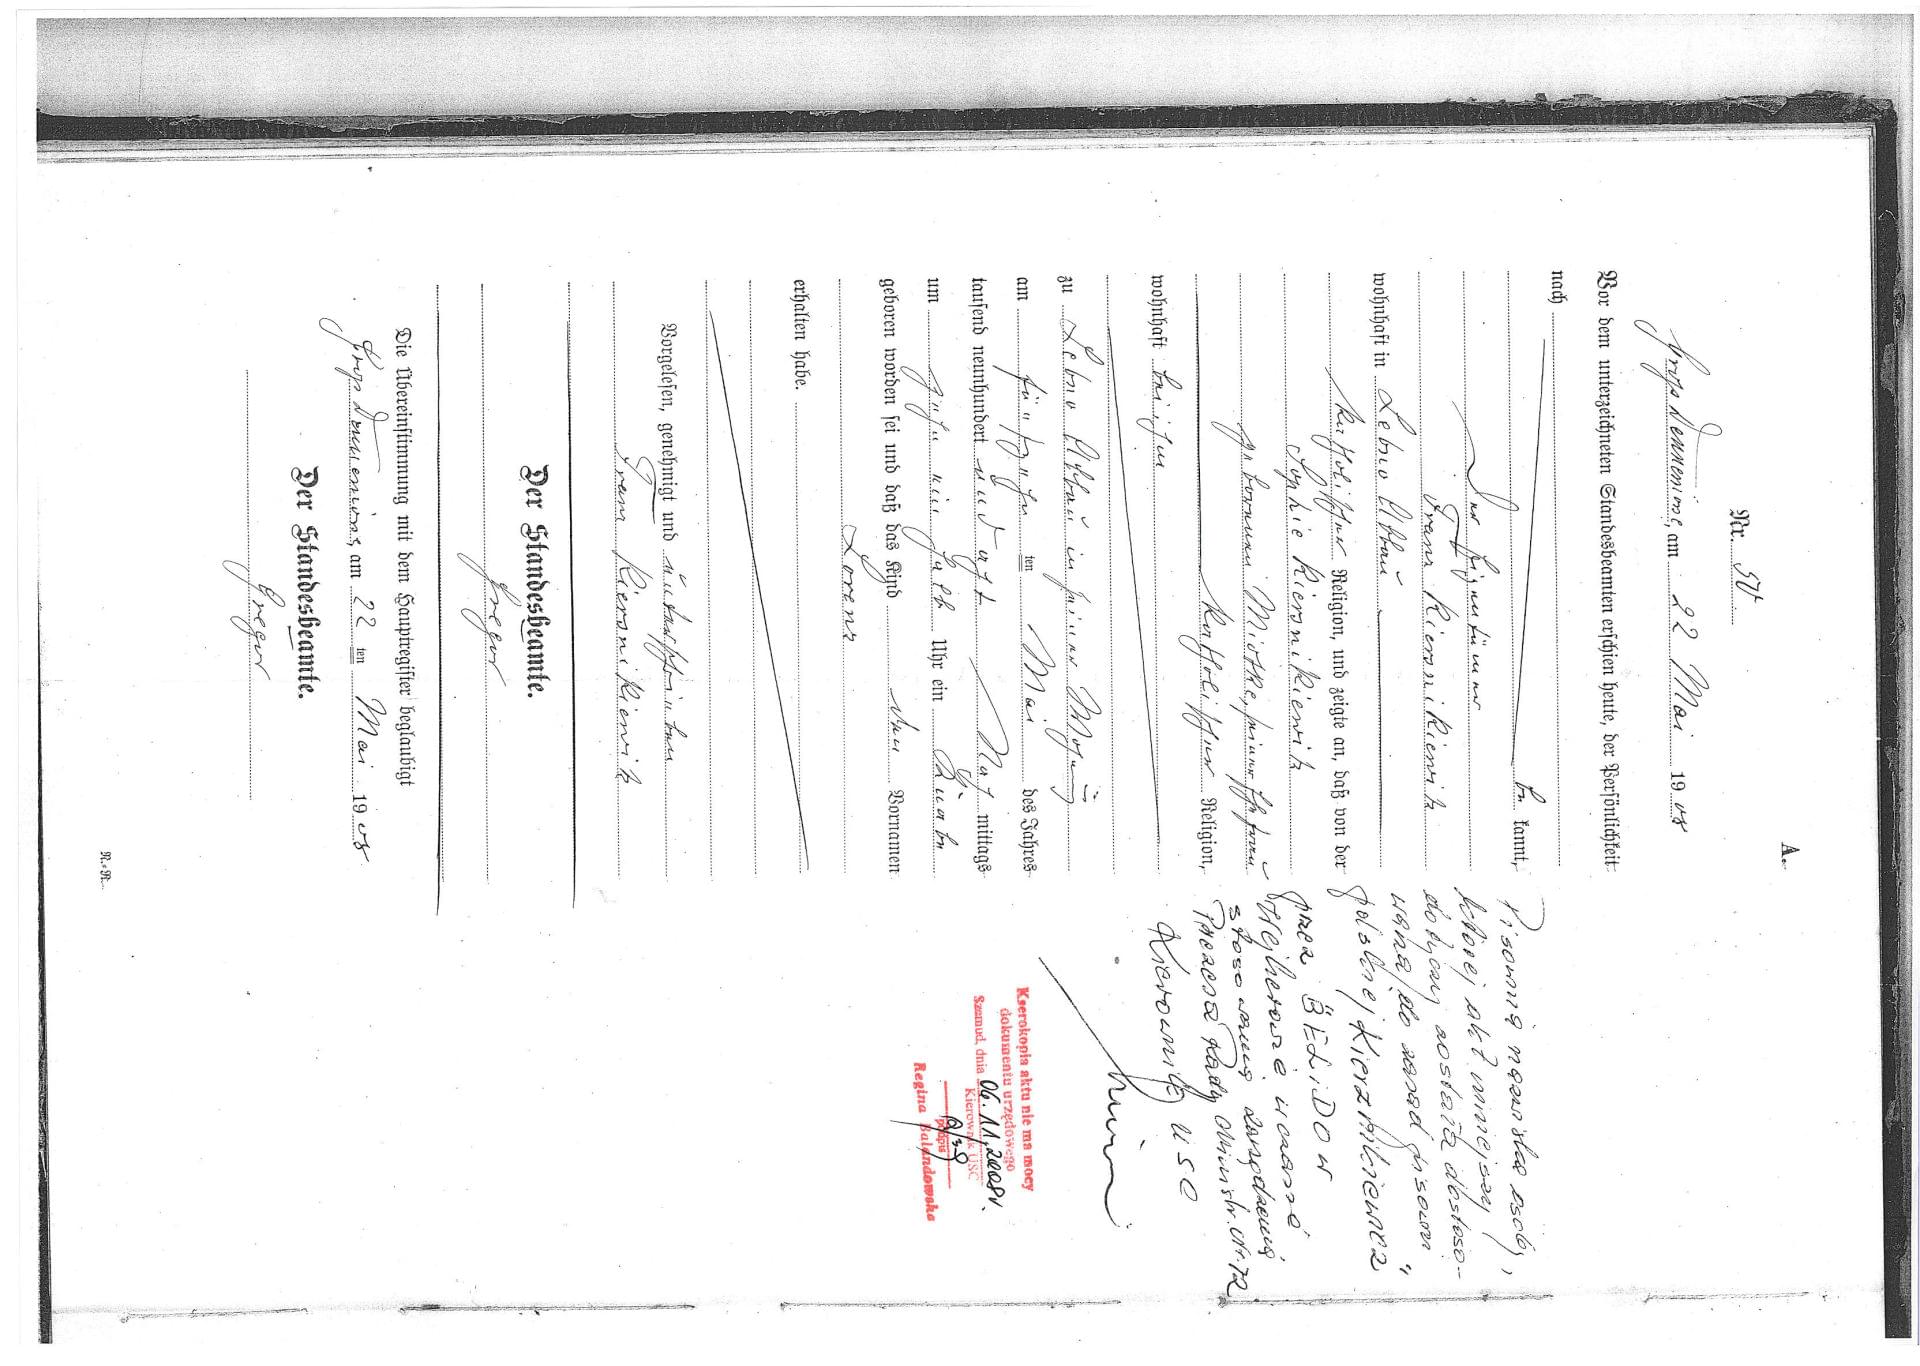 A.
Nr. 50.
Groß Dennemörse, am 22 Mai 1908
Vor dem unterzeichneten Standesbeamten erschien heute, der Persönlichkeit
nach
be kannt,
der Eigentümer
Franz Kiersnikiewitz
wohnhaft in Lebno Abbau
katholischer Religion, und zeigte an, daß von der
Sophie Kiersnikiewitz
geborenen Miotke, seiner Ehefrau
katholischer Religion,
wohnhaft bei ihm
zu Lebno Abbau in seiner Wohnung
am fünfzehn ten Mai des Jahres
tausend neunhundert und acht Nach mittags
um zehn ein halb Uhr ein Knabe
geboren worden sei und daß das Kind den Vornamen
Lorenz
erhalten habe.
Vorgelesen, genehmigt und unterschrieben
Franz Kiersnikiewitz
Der Standesbeamte.
Gregor
Die Übereinstimmung mit dem Hauptregister beglaubigt
Groß Dennemörse, am 22 ten Mai 1908
Der Standesbeamte.
Gregor
R.-R.
Pisownię nazwiska osoby,
której akt niniejszy
dotyczy została dostoso-
wana do zasad pisowni
polskiej "Kierznikiewicz"
przez
Wejherowie w ramach
stosowania zarządzenia
Prezesa Rady Ministr. Nr. 72
Kierownik USC
Kserokopia aktu nie ma mocy
dokumentu urzędowego
Szemud, dnia 06.11.2008r.
Kierownik USC
podpis
Regina Balandowska